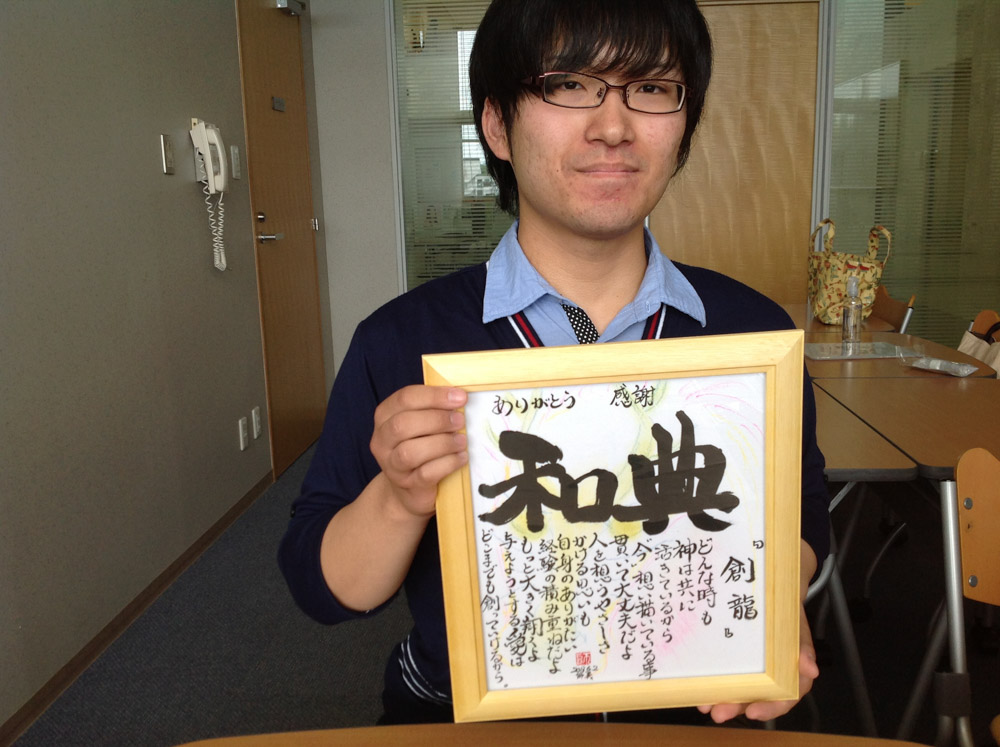 ありがとう 感謝
和典
『創龍』
どんな時も
神は共に
活きているから
"今"想い描いている事
貫いて大丈夫だよ
人を想うやさしさ
かける思いも
自身のありがたい
経験の積み重ねだよ
もっと大きく
与えようとする
どこまでも創っていけるから。